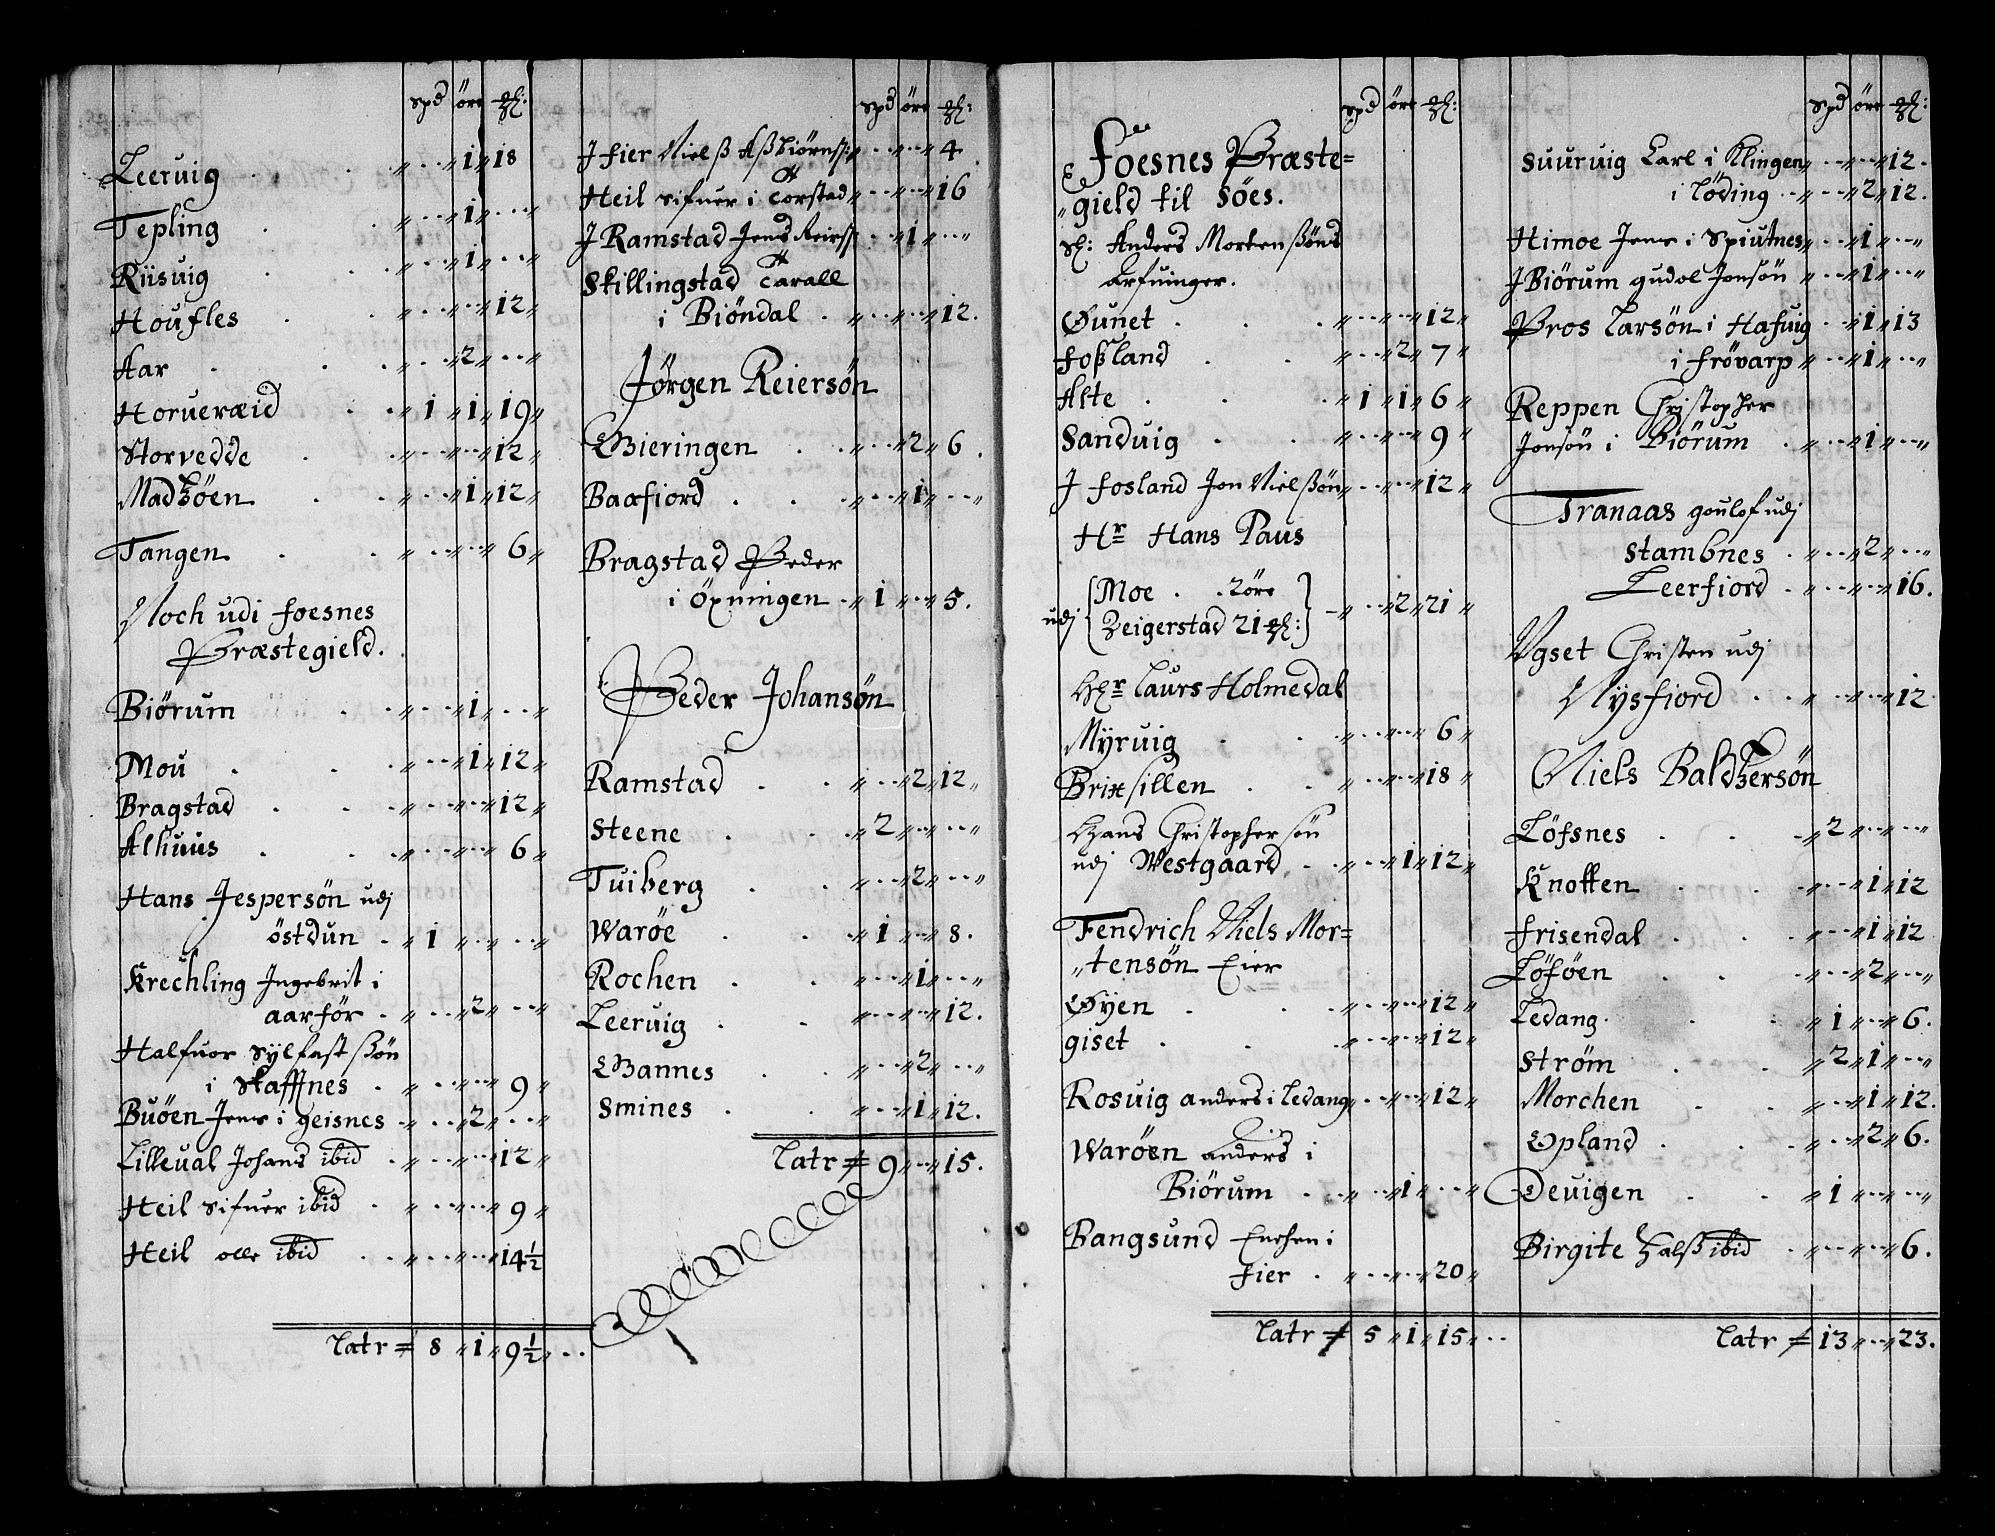 spd öre
Leeruig . . „ .. „ 1 „ 18
Tepling . . „ .. „ 1 „ .. „
Riisuig . . „ .. „ 1 „ .. „
Houfles . . „ .. „ .. „ 12 „
Aar . . „ .. „ 2 „ .. „
Horueræid . . „ 1 „ 1 „ 19 „
Storvedde . . „ .. „ .. „ 12 „
Madtzöen . . „ .. „ 1 „ 12 „
Tangen . . „ .. „ .. „ 6 „
Noch udi foesnes
Præstegield.
Biörum . . „ .. „ 1 „ .. „
Mou . . „ .. „ 1 „ 12 „
Bragstad . . „ .. „ .. „ 12 „
Alhuus . . „ .. „ .. „ 6 „
Hans Jespersön udj
östdun . „ 1 „ .. „ .. „
Krechling Ingebrit i
aarför . „ .. „ 2 „ .. „
Halfuor Sylfast ßön
i Staffnes . „ .. „ .. „ 9 „
Buöen Jens i geisnes . „ .. „ 2 „ .. „
Lilleual Johans ibid . „ .. „ .. „ 12 „
Heil Sifuer ibid . „ .. „ .. „ 9 „
Heil olle ibid . „ .. „ .. „ 14½
Latr ≠ 8 „ 1 „ 9½ „ ..
spd öre
J fier Niels Aßbiörnß: „ .. „ .. „ 4
Heil Sifuer i Torstad „ .. „ .. „ 16
J Ramstad Jens Reirß: „ .. „ 1 „ .. „
Skillingstad Tarall
i Biöndal . „ .. „ .. „ 12.
Jörgen Reiersön
Gieringen . . „ .. „ 2 „ 6.
Baafiord . . „ .. „ 1 „ .. „
Bragstad Peder
i öxningen . „ 1 „ .. „ 5.
Peder Johansön
Ramstad . . „ .. „ 2 „ 12 „
Steene . . „ 2 „ .. „ .. „
Tuiberg . . „ .. „ 2 „ .. „
Waröe . . „ 1 „ .. „ 8.
Rochen . . „ .. „ 1 „ .. „
Leeruig . . „ .. „ .. „ 12.
Gannes . . „ .. „ 2 „ .. „
Smines . . „ .. „ 1 „ 12.
Latr ≠ 9 „ .. „ 15.
spd öre
Foesnes Præste=
„gield til Söes.
Sl: Anders Morten ßöns
Arfuinger.
Øunet . . „ .. „ .. „ 12 „
Foßland . . „ .. „ 2 „ 7 „
Alte . . „ 1 „ 1 „ 6 „
Sanduig . . „ .. „ .. „ 9 „
J Fosland Jon Niel ßön „ .. „ .. „ 12 „
Hr Hans Paus
udj {Moe . . 2 öre
Zeigerstad 21} „ .. „ 2 „ 21 „
Hr Laurs Holmedal
Myruig . . „ .. „ .. „ 6 „
Brixsillen . . „ .. „ .. „ 18 „
Hans Christopher sön
udj Westgaard . „ .. „ 1 „ 12 „
Fendrich Niels Mor=
„tensön Eier
Øyen . . „ .. „ .. „ 12 „
giset . . „ .. „ .. „ 12 „
Rosuig anders i Ledang „ .. „ .. „ 12 „
Waröen anders i
Biörum . „ .. „ 1 „ .. „
Bangsund Enchen i
fier . „ .. „ .. „ 20 „
Latr ≠ 5 „ 1 „ 15 „ ..
spd öre
Suuruig Carl i Klingen „ .. „ .. „ 12.
i Löding . „ .. „ 2 „ 12.
Himoe Jens i Spiutnes „ .. „ 1 „ .. „
J Biörum gudol Jonsön „ .. „ 1 „ .. „
Pros Larsön i Hafuig . „ 1 „ 13
i frövarp „ .. „ 1 „ .. „
Reppen Christopher
Jonsön i Biörum . „ .. „ 1 „ .. „
Tranaas goulof udj
Stambnes . „ .. „ 2 „ .. „
Leerfiord . „ .. „ .. „ 16.
Ugset Christen udj
Nysfiord . . „ .. „ .. „ 12
Niels Baldtzersön
Löfsnes . . „ 2 „ .. „ .. „
Knotten . . „ .. „ 1 „ 12
Frisendal . . „ .. „ 1 „ 12
Löföen . . „ .. „ 2 „ .. „
Ledang . . „ 1 „ .. „ 6.
Ström . . „ 2 „ 1 „ .. „
Morchen . . „ .. „ 1 „ 12.
Opland . . „ .. „ 2 „ 6.
Deuigen . . „ 1 „ .. „ .. „
Birgite Halß ibid . „ .. „ .. „ 6.
Latr ≠ 13 „ .. „ 23.